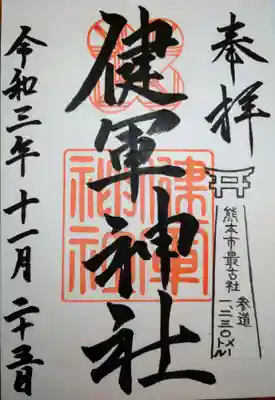 奉拝
熊本市最古社
参道
一、二三〇メートル
健軍神社
健軍神社
令和三年十一月二十五日